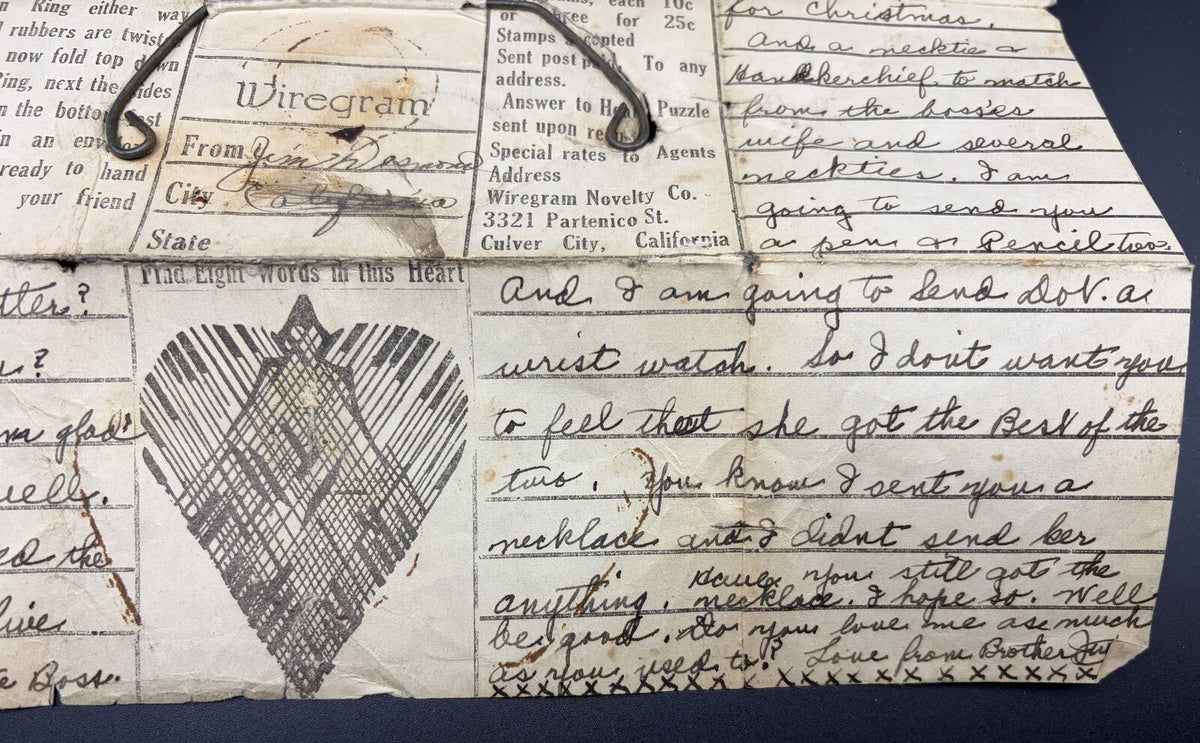 n Ring either way
rubbers are twist
now fold top down
Ring, next the sides
n the bottom last
in an enve
ready to hand
your friend
Wiregram
From Jim Desmond
City California
State
each 10c
or three for 25c
Stamps accepted
Sent post paid To any
address.
Answer to Heart Puzzle
sent upon
Special rates to Agents
Address
Wiregram Novelty Co.
3321 Partenico St.
Culver City, California
for Christmas.
And a necktie &
Handkerchief to match
from the bosses
wife and several
neckties. I am
going to send you
a pen & Pencil too.
tter?
?
m glad
well.
ed the
live
e Boss.
Find Eight Words in this Heart
And I am going to send Dot. a
wrist watch. So I dont want you
to feel that she got the Best of the
two. You know I sent you a
necklace and I didnt send her
anything. Have you still got the
necklace. I hope so. Well
be good. Do you love me as much
as you used to? Love from Brother Jim
xxxxxxxxxxxxxxxxxxxxxxxxxxxxxxxxxxx